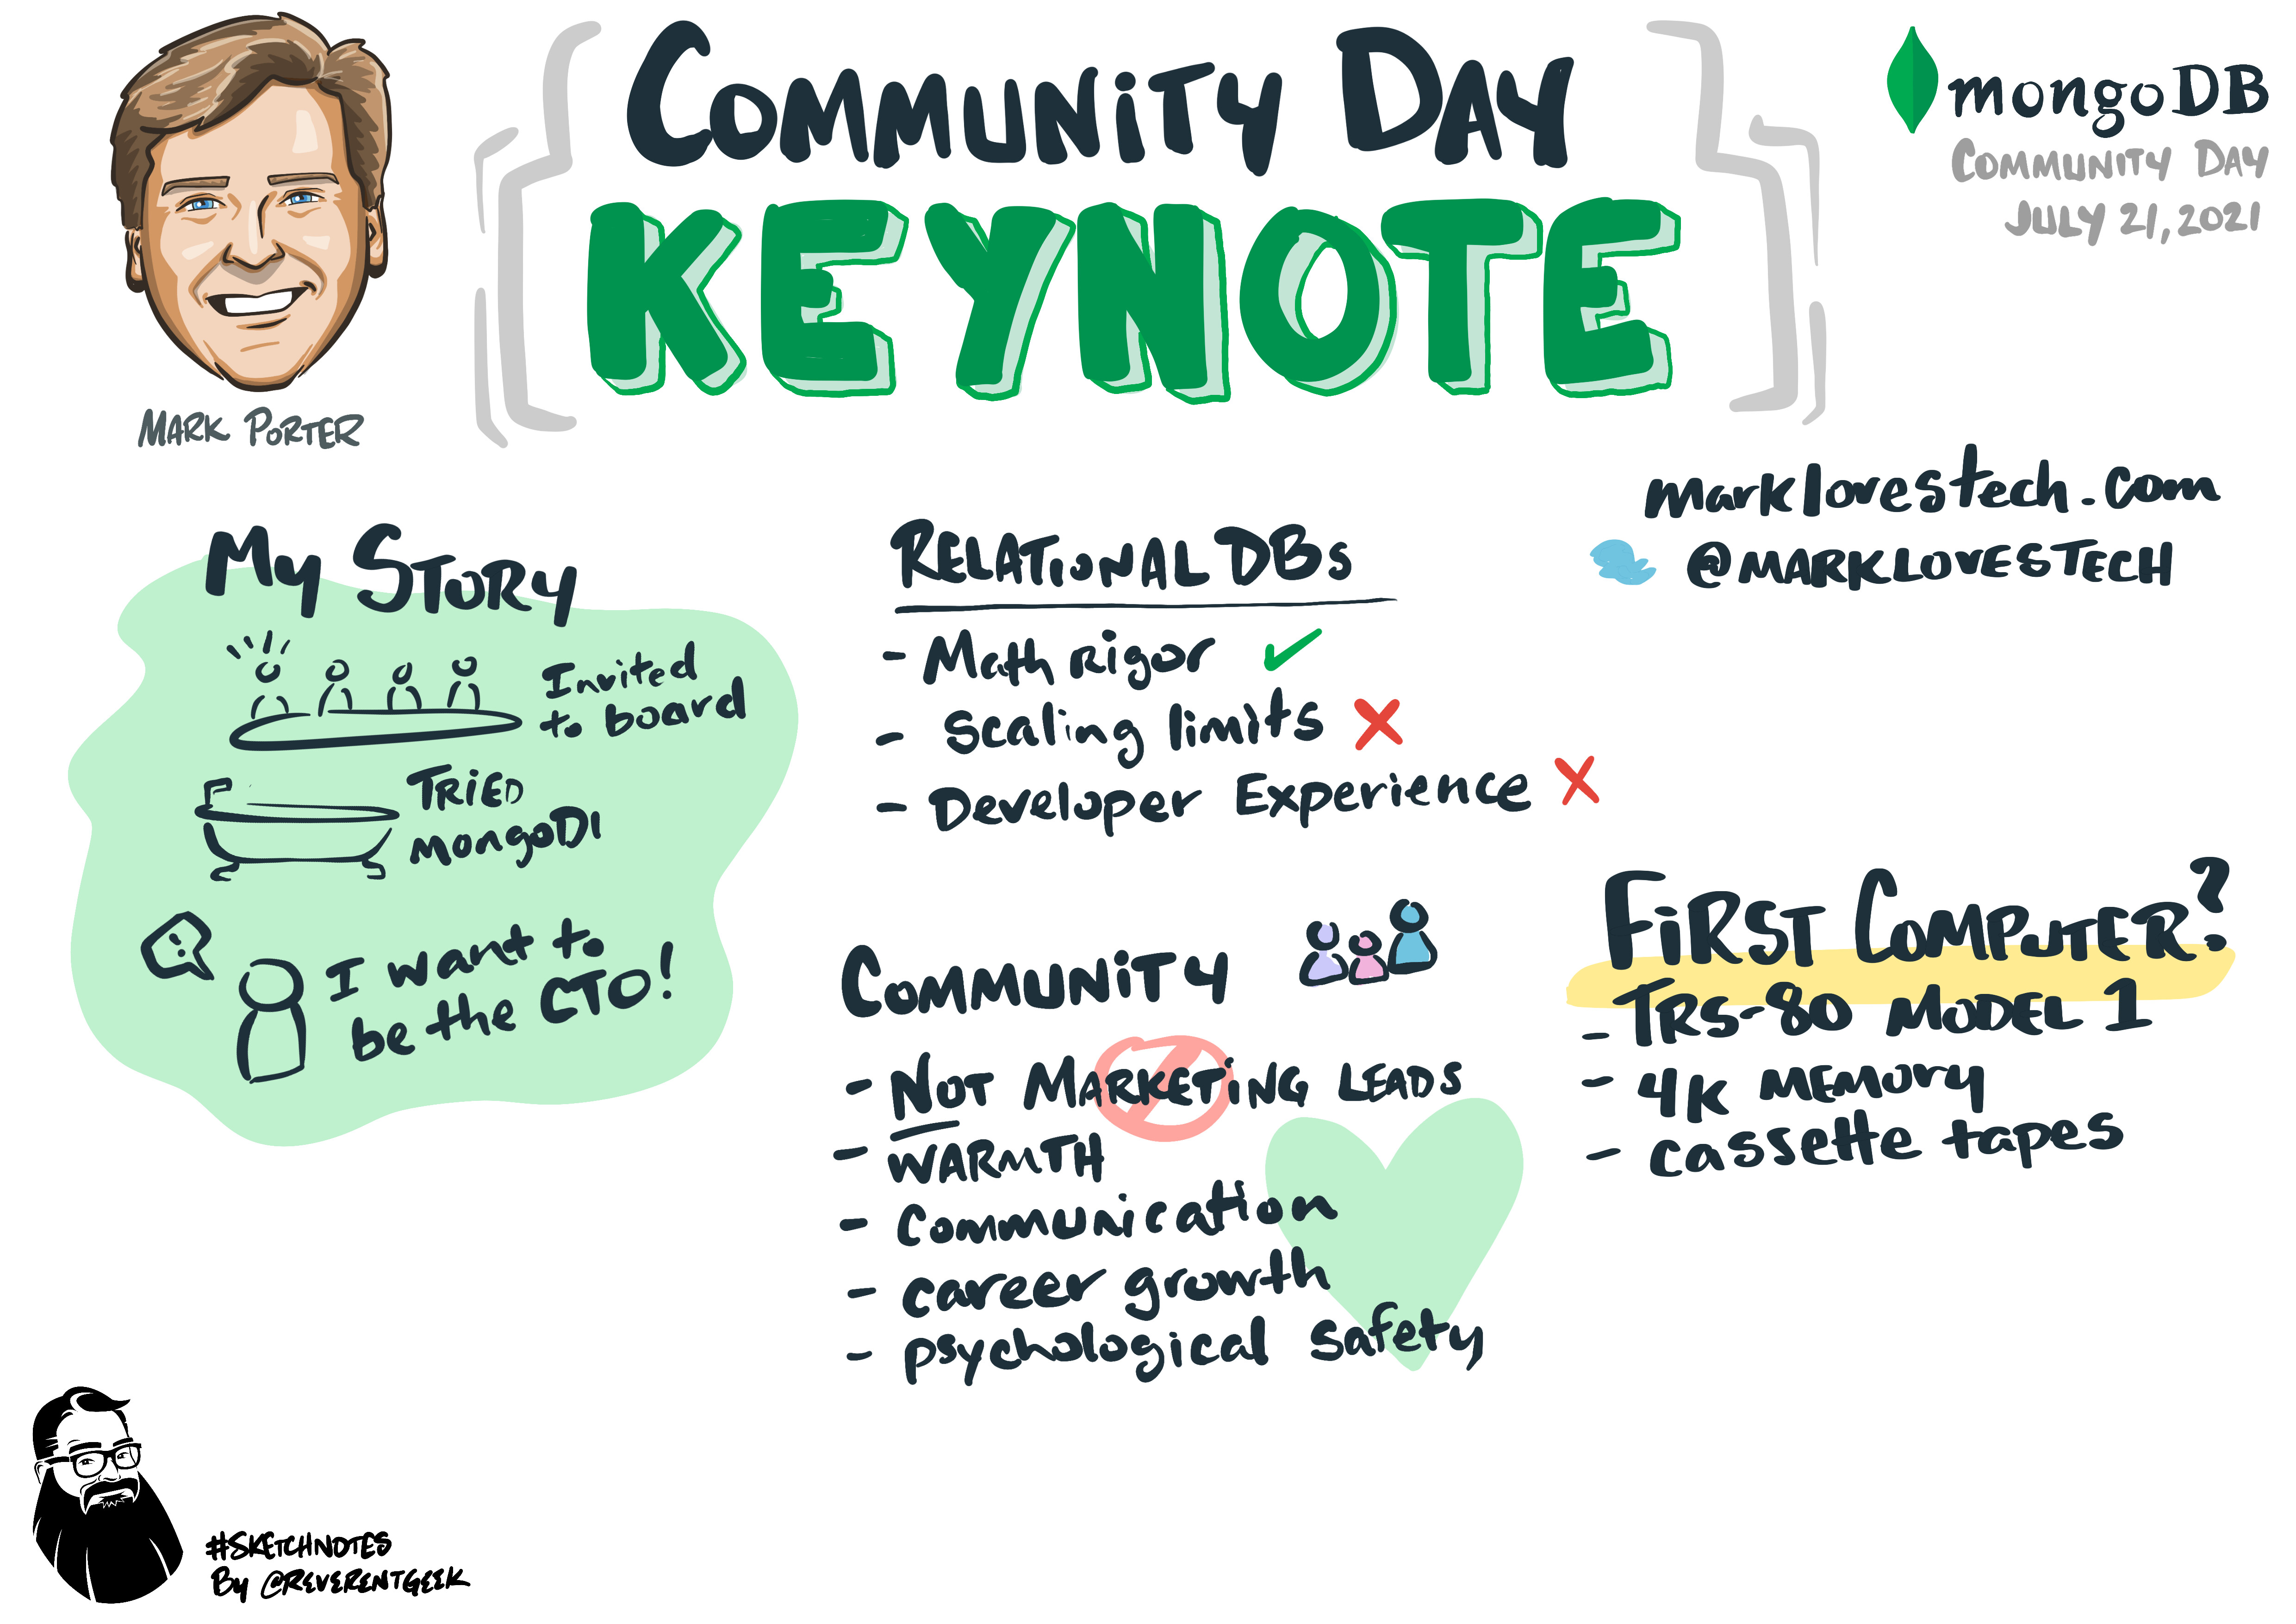 Community Day
KEYNOTE
mongoDB
Community Day
July 21, 2021
Mark Porter
marklovestech.com
@marklovestech
My Story
Invited
to board
Tried
mongoDI
I want to
be the CTO!
Relational DBs
- Math rigor
- Scaling limits
- Developer Experience
Community
- Not Marketing Leads
- Warmth
- Communication
- career growth
- psychological safety
First Computer?
- TRS-80 Model 1
- 4k memory
- cassette tapes
#sketchnotes
By @reverentgeek